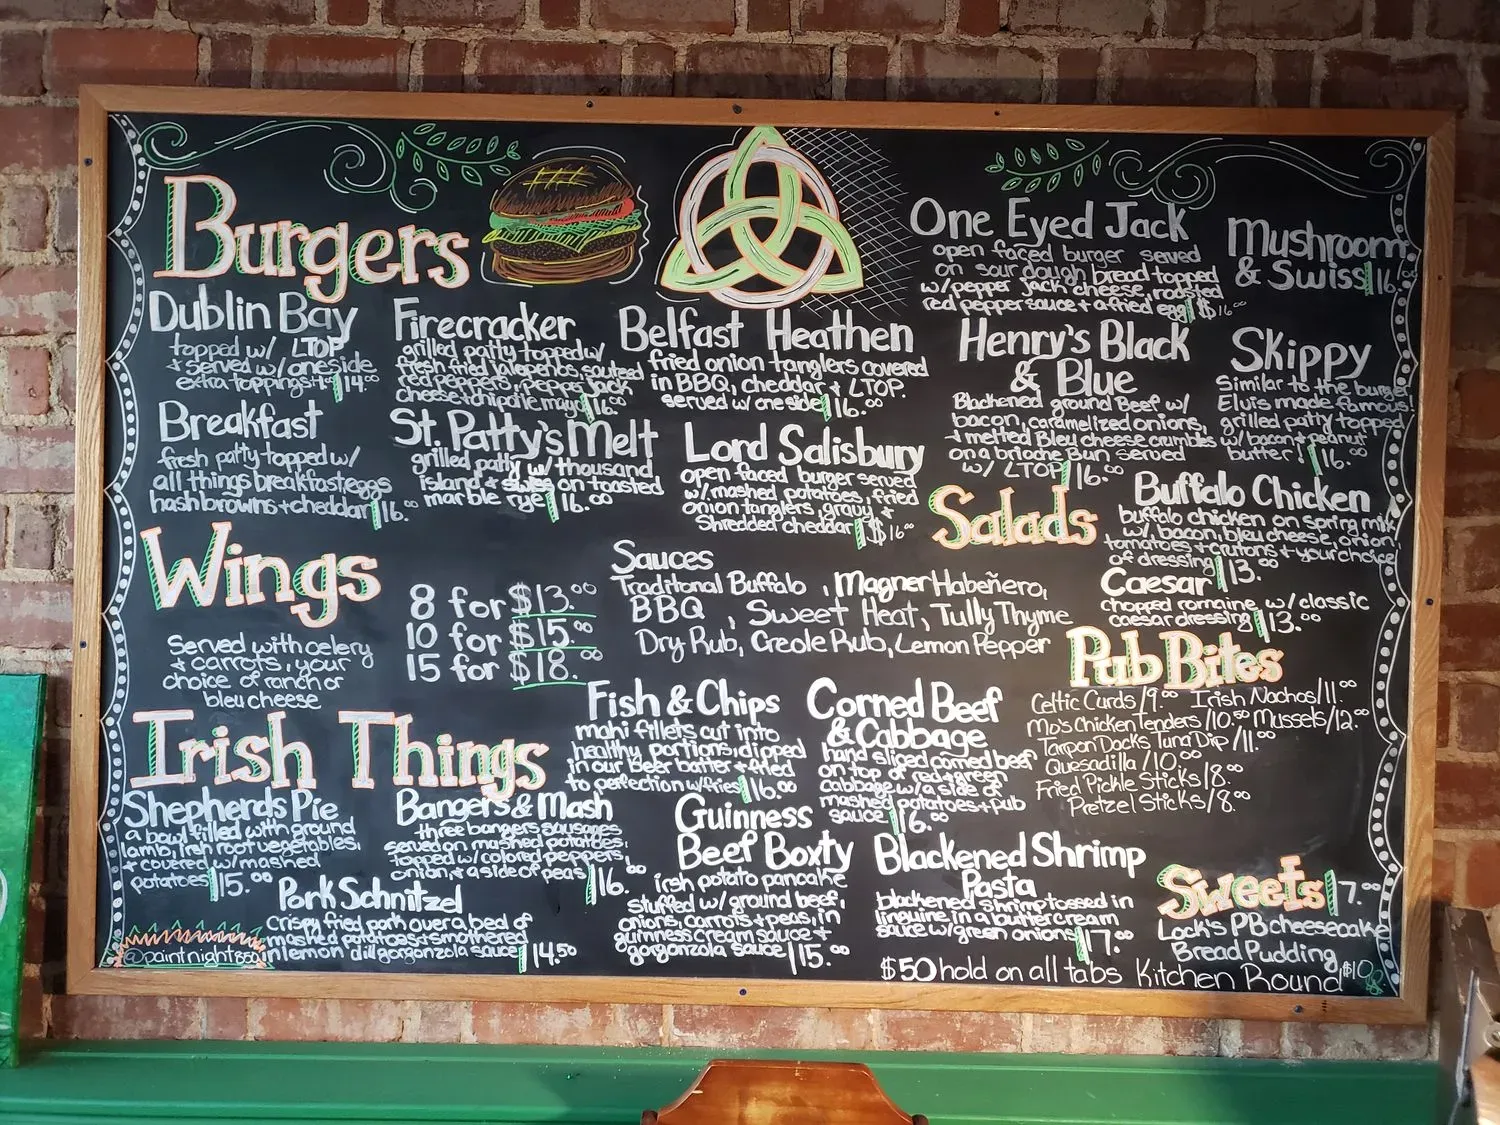 Burgers
Dublin Bay
topped w/ LTOP
+ served w/ one side
extra toppings +$ 14.00
Breakfast
fresh patty topped w/
all things breakfast eggs
hashbrowns + cheddar 16.00
Firecracker
grilled patty topped w/
fresh fried Jalapeños, sauteed
red peppers, Pepper Jack
cheese + chipotle mayo 16.00
St. Patty's Melt
grilled patty w/ thousand
island + swiss on toasted
marble rye 16.00
Belfast Heathen
fried onion tanglers covered
in BBQ, cheddar + LTOP.
served w/ one side 16.00
Lord Salisbury
open faced burger served
w/ mashed potatoes, fried
onion tanglers, gravy +
Shredded cheddar $16.00
One Eyed Jack
open faced burger served
on sour dough bread topped
w/ pepper Jack cheese, roasted
red pepper sauce + a fried egg $16.00
Henry's Black
& Blue
Blackened ground Beef w/
bacon, caramelized onions,
+ melted Bleu cheese crumbles
on a brioche Bun served
w/ LTOP 16.00
Mushroom
& Swiss 16.00
Skippy
Similar to the burger
Elvis made famous!
grilled patty topped
w/ bacon + peanut
butter! 16.00
Wings
Served with celery
+ carrots, your
choice of ranch or
bleu cheese
8 for $13.00
10 for $15.00
15 for $18.00
Sauces
Traditonal Buffalo, Magner Habeñero,
BBQ, Sweet Heat, Tully Thyme
Dry Rub, Creole Rub, Lemon Pepper
Salads
Buffalo Chicken
buffalo chicken on spring mix
w/ bacon, bleu cheese, onion,
tomatoes + crutons + your choice
of dressing 13.00
Caesar
chopped romaine w/ classic
caesar dressing 13.00
Pub Bites
Celtic Curds/9.00 Irish Nachos/11.00
Mo's Chicken Tenders/10.50 Mussels/12.00
Tarpon Docks Tuna Dip/11.00
Quesadilla/10.00
Fried Pickle Sticks/8.00
Pretzel Sticks/8.00
Irish Things
Shepherds Pie
a bowl filled with ground
lamb, irsh root vegetables,
+ covered w/ mashed
potatoes 15.00
Bangers & Mash
three bangers sausages
served on mashed potatoes,
topped w/ colored peppers,
onion, + a side of peas 16.00
Pork Schnitzel
Crispy fried pork over a bed of
mashed potatoes + smothered
in lemon dill gorgonzola sauce 14.50
Fish & Chips
mahi fillets cut into
healthy portions, dipped
in our Beer batter + fried
to perfection w/ fries 16.00
Guinness
Beef Boxty
irsh potato pancake
stuffed w/ ground beef,
onions, carrots + peas, in
guinness cream sauce +
gorgonzola sauce 15.00
Corned Beef
& Cabbage
hand sliced corned beef
on top of red + green
cabbage w/ a side of
mashed potatoes + pub
sauce 16.00
Blackened Shrimp
Pasta
blackened shrimp tossed in
linguine in a buttercream
sauce w/ green onions 17.00
Sweets 7.00
Lock's PB cheesecake
Bread Pudding
$50 hold on all tabs Kitchen Round $10
@paintnight850